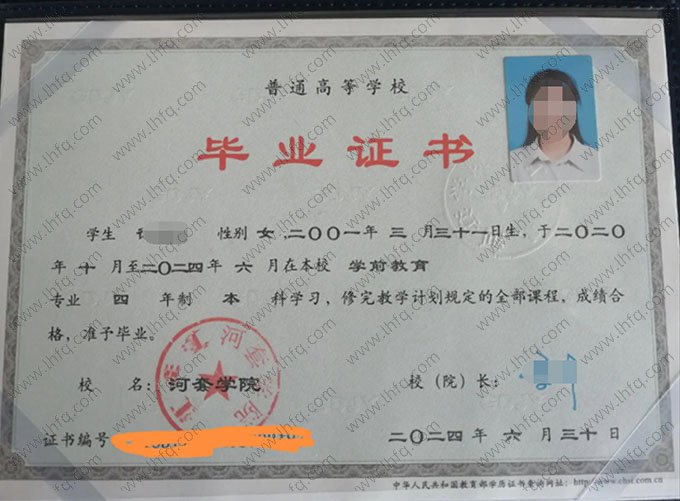 普通高等学校
毕业证书
学生 性别 女,二〇〇一年 三 月三十一日生,于二〇二〇
年 十 月至二〇二四年 六 月在本校 学前教育
专业 四 年制 本 科学习,修完教学计划规定的全部课程,成绩合
格,准予毕业。
河套学院
校 名:河套学院
校(院)长:
证书编号
二〇二四年 六 月三十日
中华人民共和国教育部学历证书查询网址:http://www.chsi.com.cn
www.lhfq.com